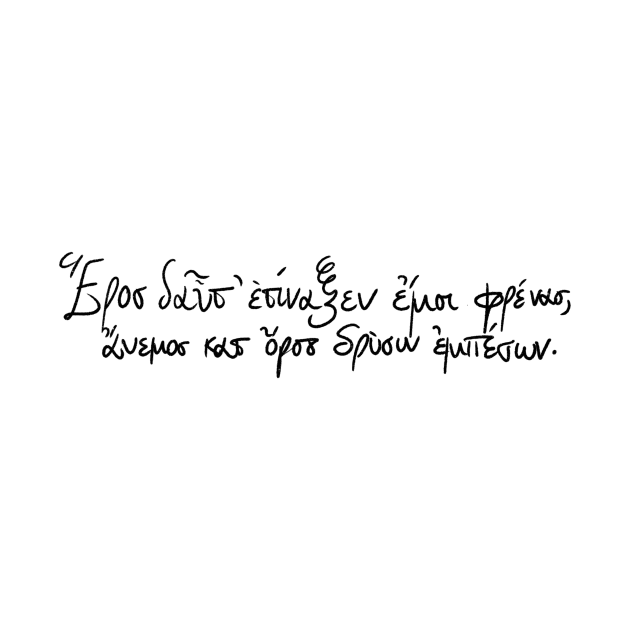 Ἔροσ δαὖτ' ἐτίναξεν ἔμοι φρένασ,
ἄνεμοσ κατ ὄροσ δρὺσιν ἐμπέσων.